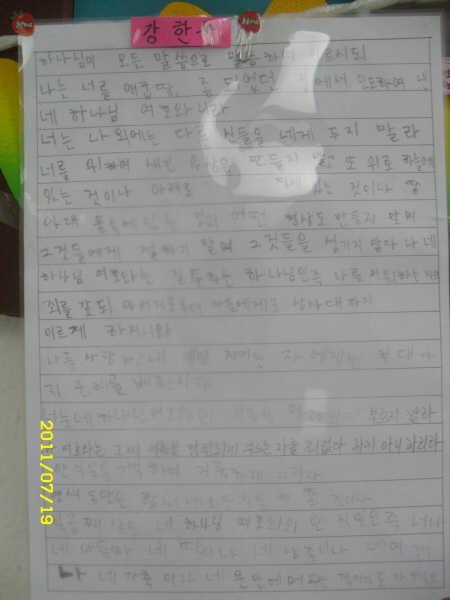 강한
하나님이 모든 말씀으로 말씀하여 이르시되
나는 너를 애굽땅, 종 되었던 집에서 인도하여 낸
네 하나님 여호와니라
너는 나 외에는 다른 신들을 네게 두지 말라
너를 위하여 새긴 우상을 만들지 말고 또 위로 하늘에
있는 것이나 아래로 땅에 있는 것이나 땅
아래 물속에 있는 것의 어떤 형상도 만들지 말며
그것들에게 절하지 말며 그것들을 섬기지 말라 나 네
하나님 여호와는 질투하는 하나님인즉 나를 미워하는 자의
죄를 갚되 아버지로부터 아들에게로 삼사 대까지
이르게 하려니와
나를 사랑하고 내 계명 지키는 자에게는 천 대까
지 은혜를 베푸느니라
너는 네 하나님 여호와의 이름을 망령되게 부르지 말라
여호와는 그의 이름을 망령되게 부르는 자를 죄없다 하지 아니하리라
안식일을 기억하여 거룩하게 지키라
엿새 동안은 힘써 네 모든 일을 행할 것이나
일곱째 날은 네 하나님 여호와의 안식일인즉 너나
네 아들이나 네 딸이나 네 남종이나 네 여종이
나 네 가축이나 네 문안에 머무는
2011/07/19